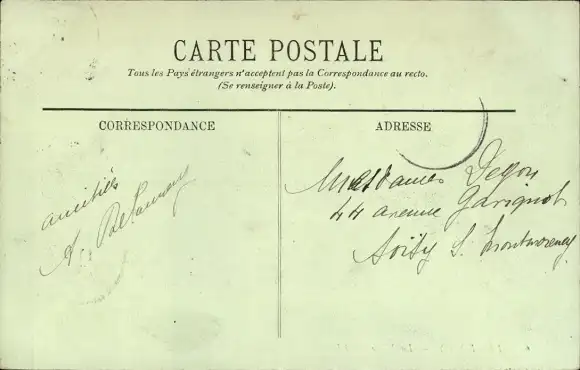 CARTE POSTALE
Tous les Pays étrangers n'acceptent pas la Correspondance au recto.
(Se renseigner à la Poste).
CORRESPONDANCE
ADRESSE
amitiés
A. Delaunay
Mesdames Degon
44 avenue Garignot
Soisy S. Montmorency